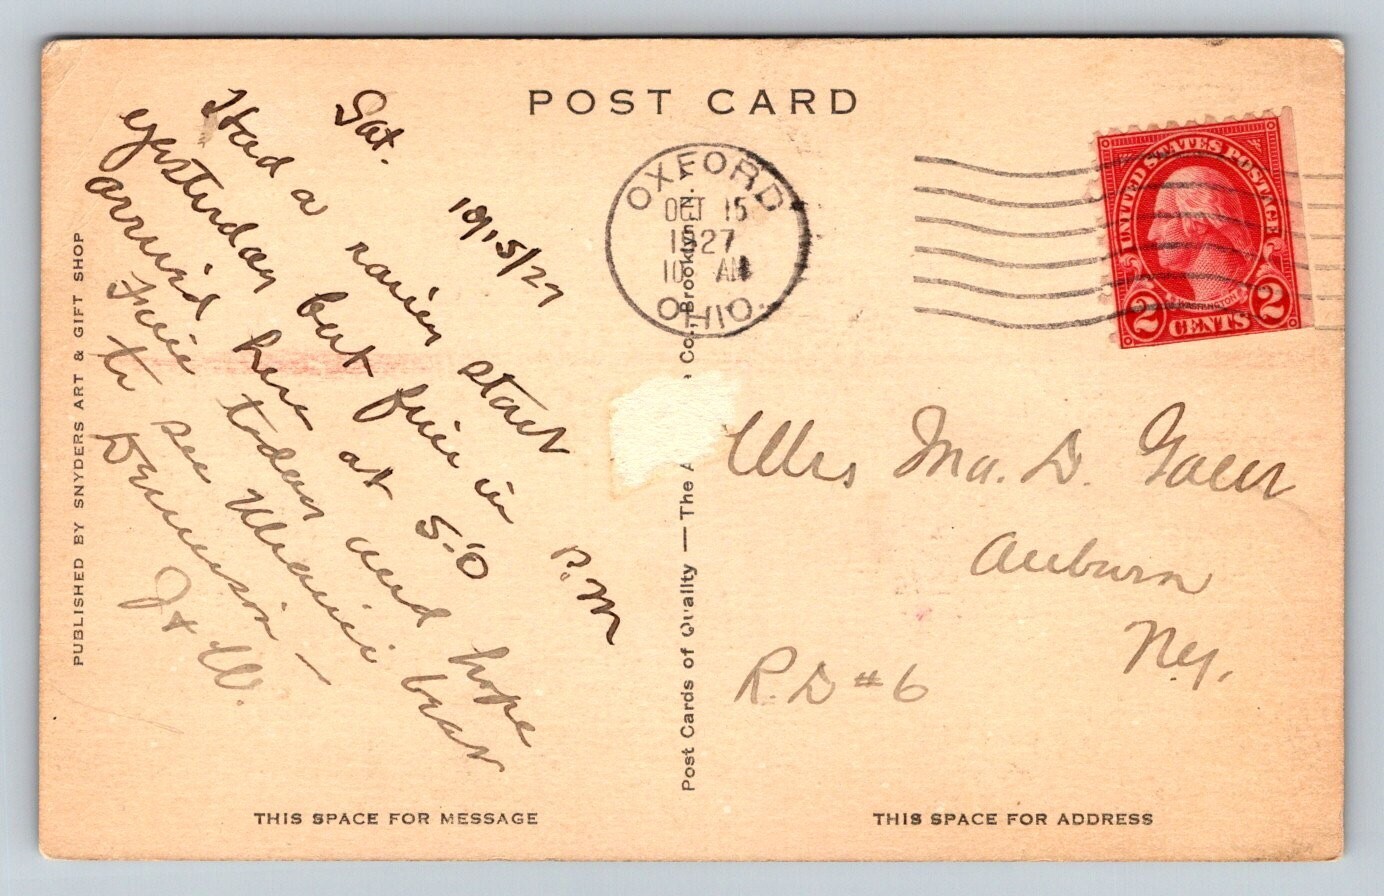 POST CARD
Sat.
10/15/27
Had a rainy start
yesterday but fine in P.M
arrived here at 5-0
Fine today and hope
to see Miami beat
Dennison -
J + W.
OXFORD
OCT 15
1927
10 AM
OHIO.
UNITED STATES POSTAGE
WASHINGTON
2 CENTS 2
Mrs Ma. D.
Auburn
N.y.
R.D #6
PUBLISHED BY SNYDERS ART & GIFT SHOP
Post Cards of Quality — The A Co., Brooklyn, N.
THIS SPACE FOR MESSAGE
THIS SPACE FOR ADDRESS